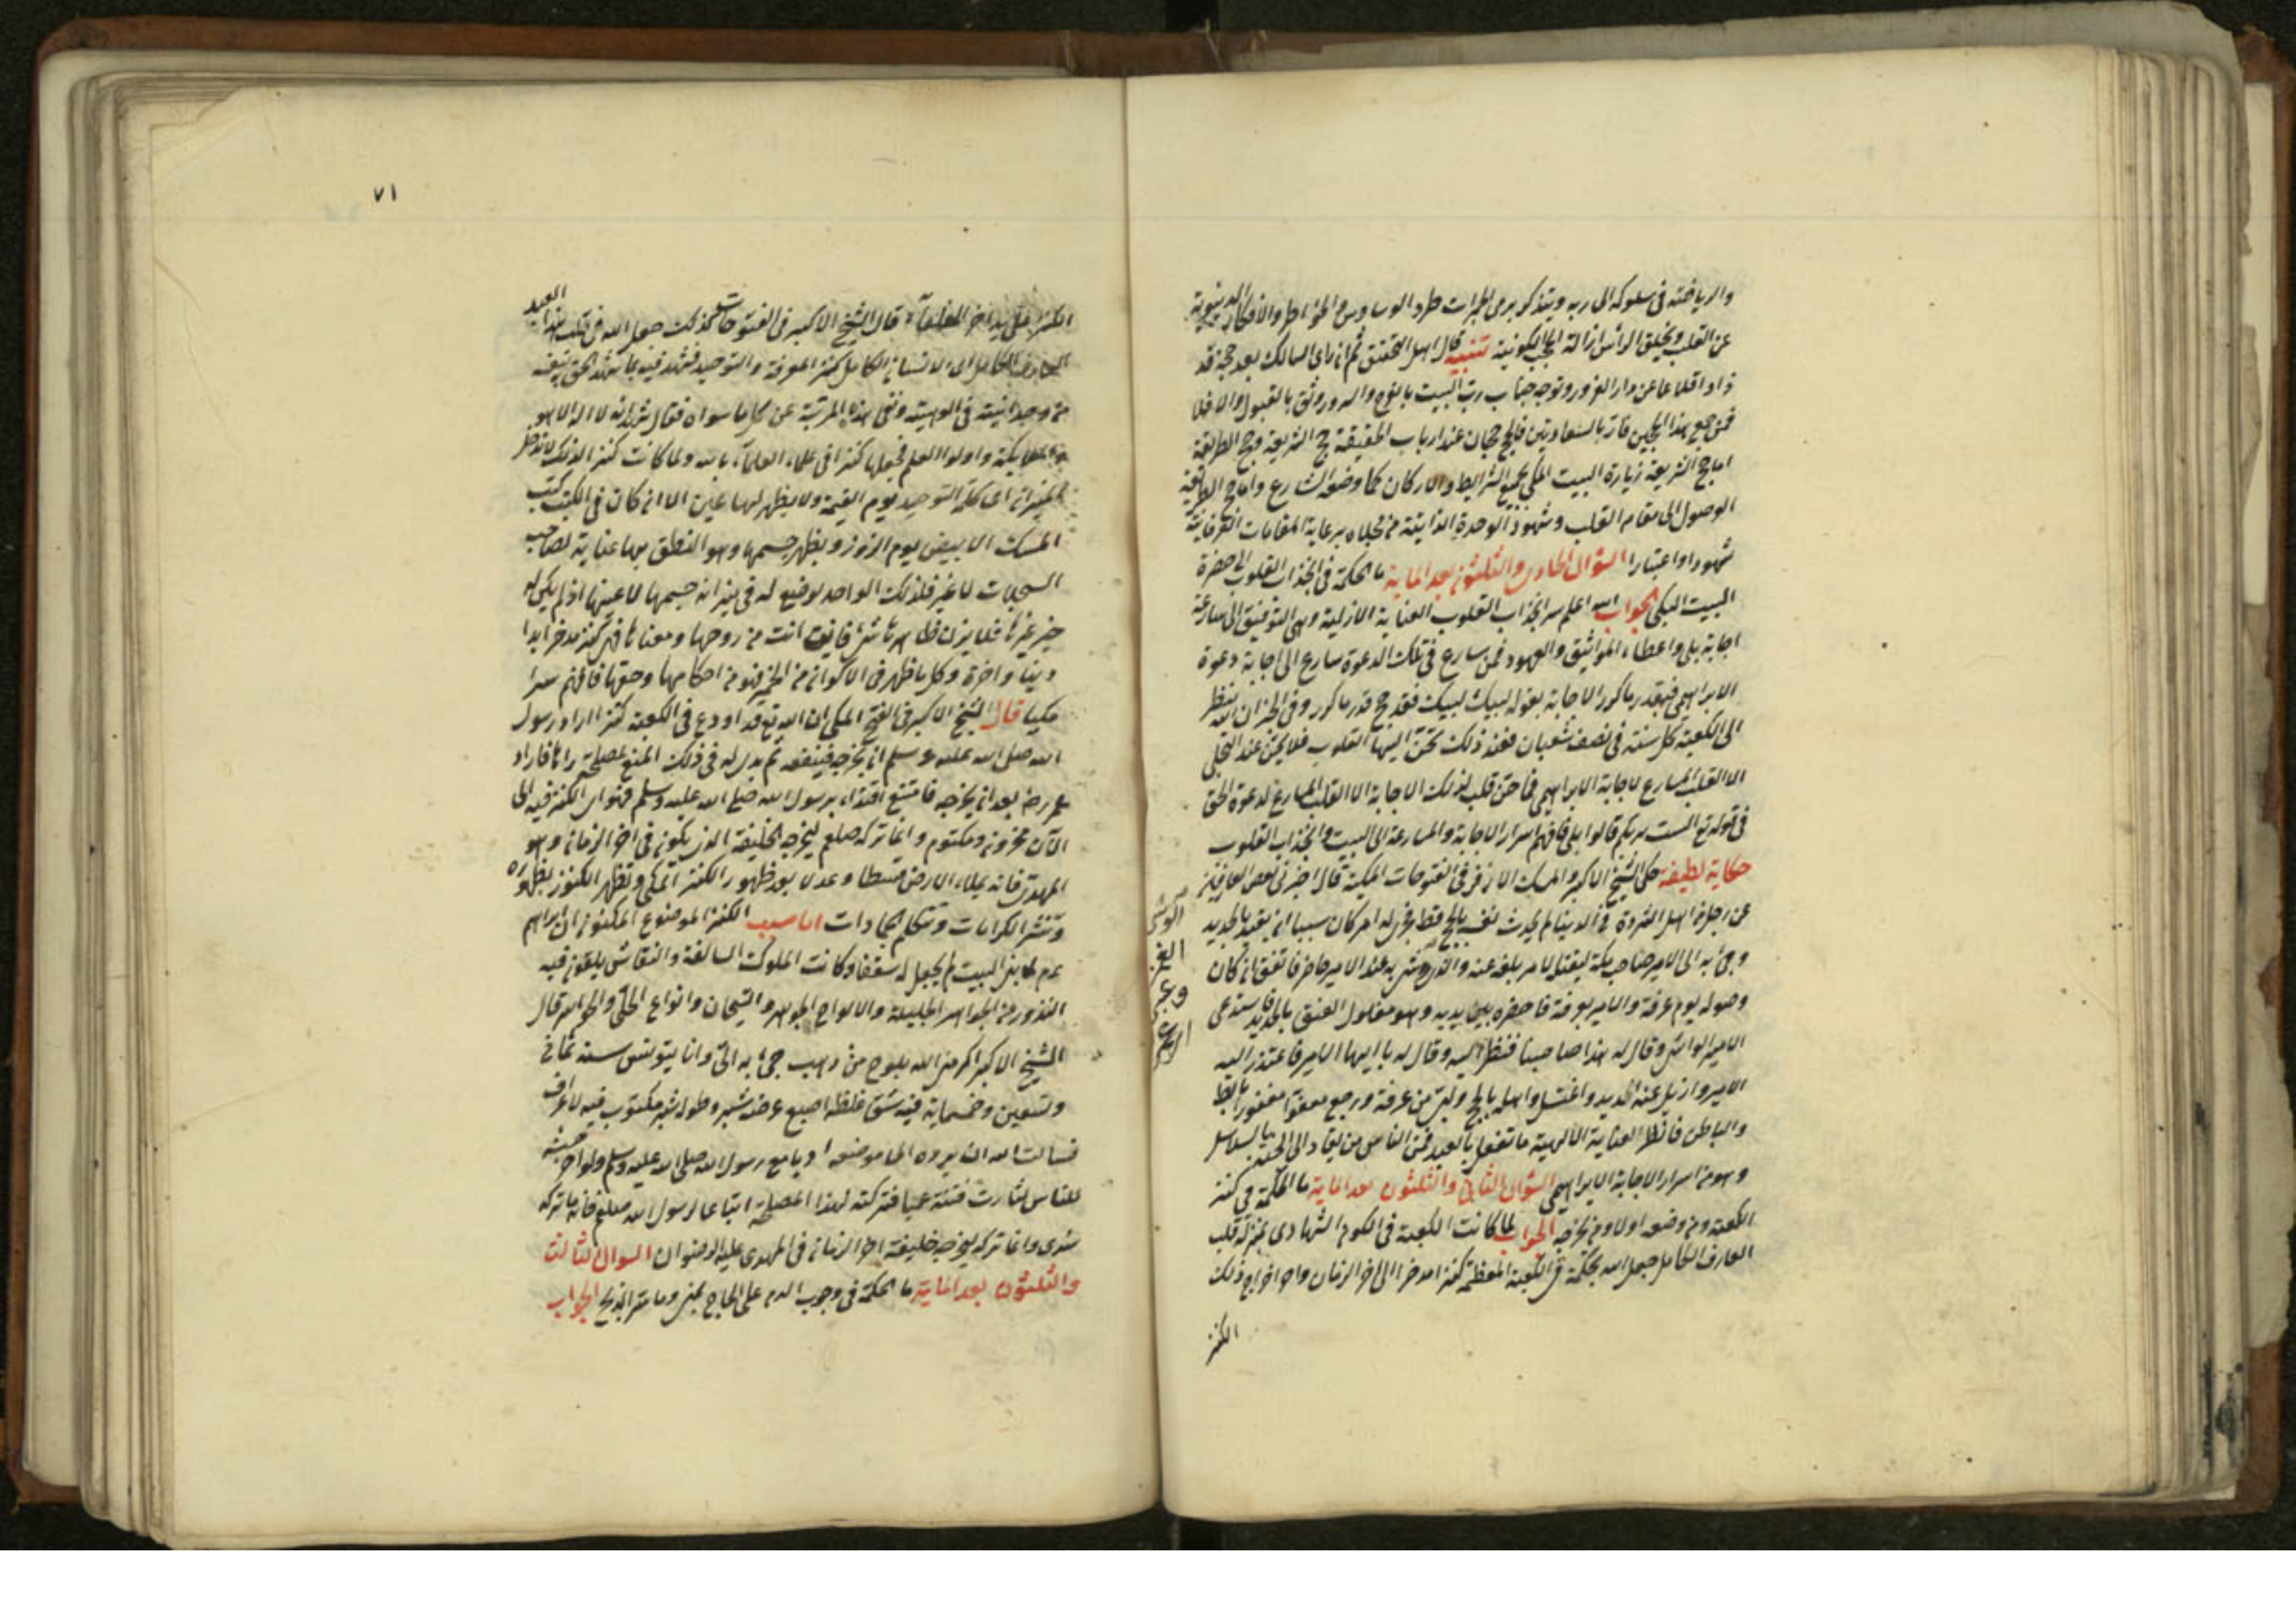 والرياضة فى سلوكه الى ربه ويتذكر برمى الجمرات طرد الوساوس والخواطر والافكار الدنيوية
عن القلب وبحلق الرأس ازالة الحجب الكونية تنبيه قال اهل التحقيق ثم ان راى السالك بعد حجه قد
زاد اقلاعا عن دار الغرور وتوجه جناب رب البيت بالفوح والسرور وثق بالقبول والا فلا
فمن جمع بهذا الحجين فاز بالسعادتين فالحج حجان عند ارباب الحقيقة حج الشريعة وحج الطريقة
اما حج الشريعة زيارة البيت المكى بجميع الشرايط والاركان كما وضعه الشارع واما حج الطريقة
الوصول الى مقام القلب وشهود الوحدة الذاتية من مجلاه برعاية المقامات العرفانية
شهودا واعتبارا السؤال الحادى والثلثون بعد الماية ما الحكمة فى انجذاب القلوب الى حضرة
البيت المكى الجواب الله اعلم سر انجذاب القلوب العناية الازلية وهى التوفيق الى مسارعة
اجابة بلى واعطاء المواثيق والعهود فمن سارع فى تلك الدعوة سارع الى اجابة دعوة
الابراهيمى فبقدر ما كرر الاجابة بقوله لبيك لبيك فقد حج قدر ما كرر وفى الخبر ان الله ينظر
الى الكعبة كل سنة فى نصف شعبان فعند ذلك تحن اليها القلوب فلا يحن عند التجلى
الا القلب المسارع لاجابة الابراهيمى فما حن قلب لذلك الاجابة الا القلب المسارع لدعوة الحق
فى قوله تع الست بربكم قالوا بلى فافهم اسرار الاجابة والمسارعة الى البيت وانجذاب القلوب
حكاية لطيفة حكى الشيخ الاكبر والمسك الازفر فى الفتوحات المكية قال اخبرنى بعض العارفين
عن رجل من اهل الثروة فى الدنيا لم يحدث نفسه بالحج قط فجرى له امر كان سببا ان يقيد بالحديد
وجئ به الى الامير صاحب مكة ليقتله لامر بلغه عنه والذى وشى به عند الامير حاضر فاتفق ان كان
وصوله يوم عرفة والامير بعرفة فاحضره بين يديه وهو مغلول العنق بالحديد فاستدعى
الامير الواشى وقال له هذا صاحبنا فنظر اليه وقال له يا ايها الامير فاعتذر اليه
الامير وازيل عنه الحديد واغتسل واهل بالحج ولبى من عرفة ورجع معفوا مغفورا
والباطن فانظر العناية الالهية ما تفعل بالعبد فمن الناس من يقاد الى الجنة بالسلاسل
وهو من اسرار الاجابة الابراهيمى السؤال الثانى والثلثون بعد الماية ما الحكمة فى كنز
الكعبة ومن وضعه اولا ومن يخرجه الجواب لما كانت الكعبة فى الكون الشهادى بمنزلة قلب
العارف الكامل جعل الله بحكمته فى الكعبة المعظمة كنزا مدخرا الى اخر الزمان واخر اخراج ذلك
الكنز
٧١
الكنز على يد اخر الخلفآء قال الشيخ الاكبر فى الفتوحات كذلك جعل الله فى قلب هذا العبد
العارف الكامل اى الانسان الكامل كنز المعرفة والتوحيد فشهد فيه بما شهد الحق لنفسه
من وحدانيته فى الوهيته ونفى هذه المرتبة عن كل ما سواه فقال شهد الله انه لا اله الا هو
والملايكة واولوا العلم فجعلها كنزا فى علماء العلمآء بالله ولما كانت كنزا لذلك لا تدخل
الميزان اى كلمة التوحيد يوم القيمة ولا يظهر لها عين الا ان كان فى الكتب كتب
المسك الابيض يوم الزور ويظهر جسمها وهو النطق بها عناية لصاحب
السجلات لا غير فلذلك الواحد يوضع له فى ميزانه جسمها لا عينها اذ لم يكن له
خير غيرها فلا يزن ظاهرها شئ فاين انت من روحها ومعناها فهى كنز مدخر ابدا
دنيا واخرة وكل ما ظهر فى الاكوان من الخير فهو من احكامها وحقها فافهم سرا
مكيا قال الشيخ الاكبر فى الفتح المكى ان الله تع قد اودع فى الكعبة كنزا اراد رسول
الله صلى الله عليه وسلم ان يخرجه فينفقه ثم بدى له فى ذلك المنع لمصلحة رآها فاراد
عمر رضه بعد ان يخرجه فامتنع اقتداء برسول الله صلى الله عليه وسلم فهو اى الكنز فيه الى
الآن مخزون ومكتوم وانما تركه صلعم ليخرجه الخليفة الذى يكون فى اخر الزمان وهو
المهدى فانه يملاء الارض قسطا وعدلا بعد ظهور الكنز المكى وتظهر الكنوز بظهوره
وتنشر الكرامات وتتكلم الجمادات اما سبب الكنز الموضوع المكنون ان ابراهيم
عم لما بنى البيت لم يجعل له سقفا وكانت الملوك السالفة والنقاش يلقون فيه
النذور من الجواهر الجليلة والالواح الجوهر والتيجان وانواع الحلى والجواهر قال
الشيخ الاكبر اكرمنى الله بلوح من ذهب جئ به الى وانا بتونس سنة ثمان
وتسعين وخمسماية فيه شق غلظه اصبع عرضه شبر وطوله شبر مكتوب فيه لا اعرف
فسالت الله ان يرده الى موضعه ادبا مع رسول الله صلى الله عليه وسلم ولو اخرجته
للناس لثارت فتنة عميا فتركته لهذا المصلحة اتباعا لرسول الله صلعم فانه ما تركه
سدى وانما تركه ليخرجه خليفة اخر الزمان فى المهدى عليه الرضوان السوال الثالث
والثلثون بعد الماية ما الحكمة فى وجوب الدم على الحاج بمنى وما سر الذبح الجواب